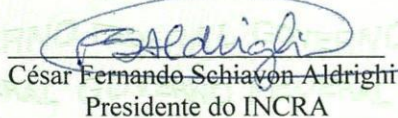 César Fernando Schiavon Aldrighi
Presidente do INCRA